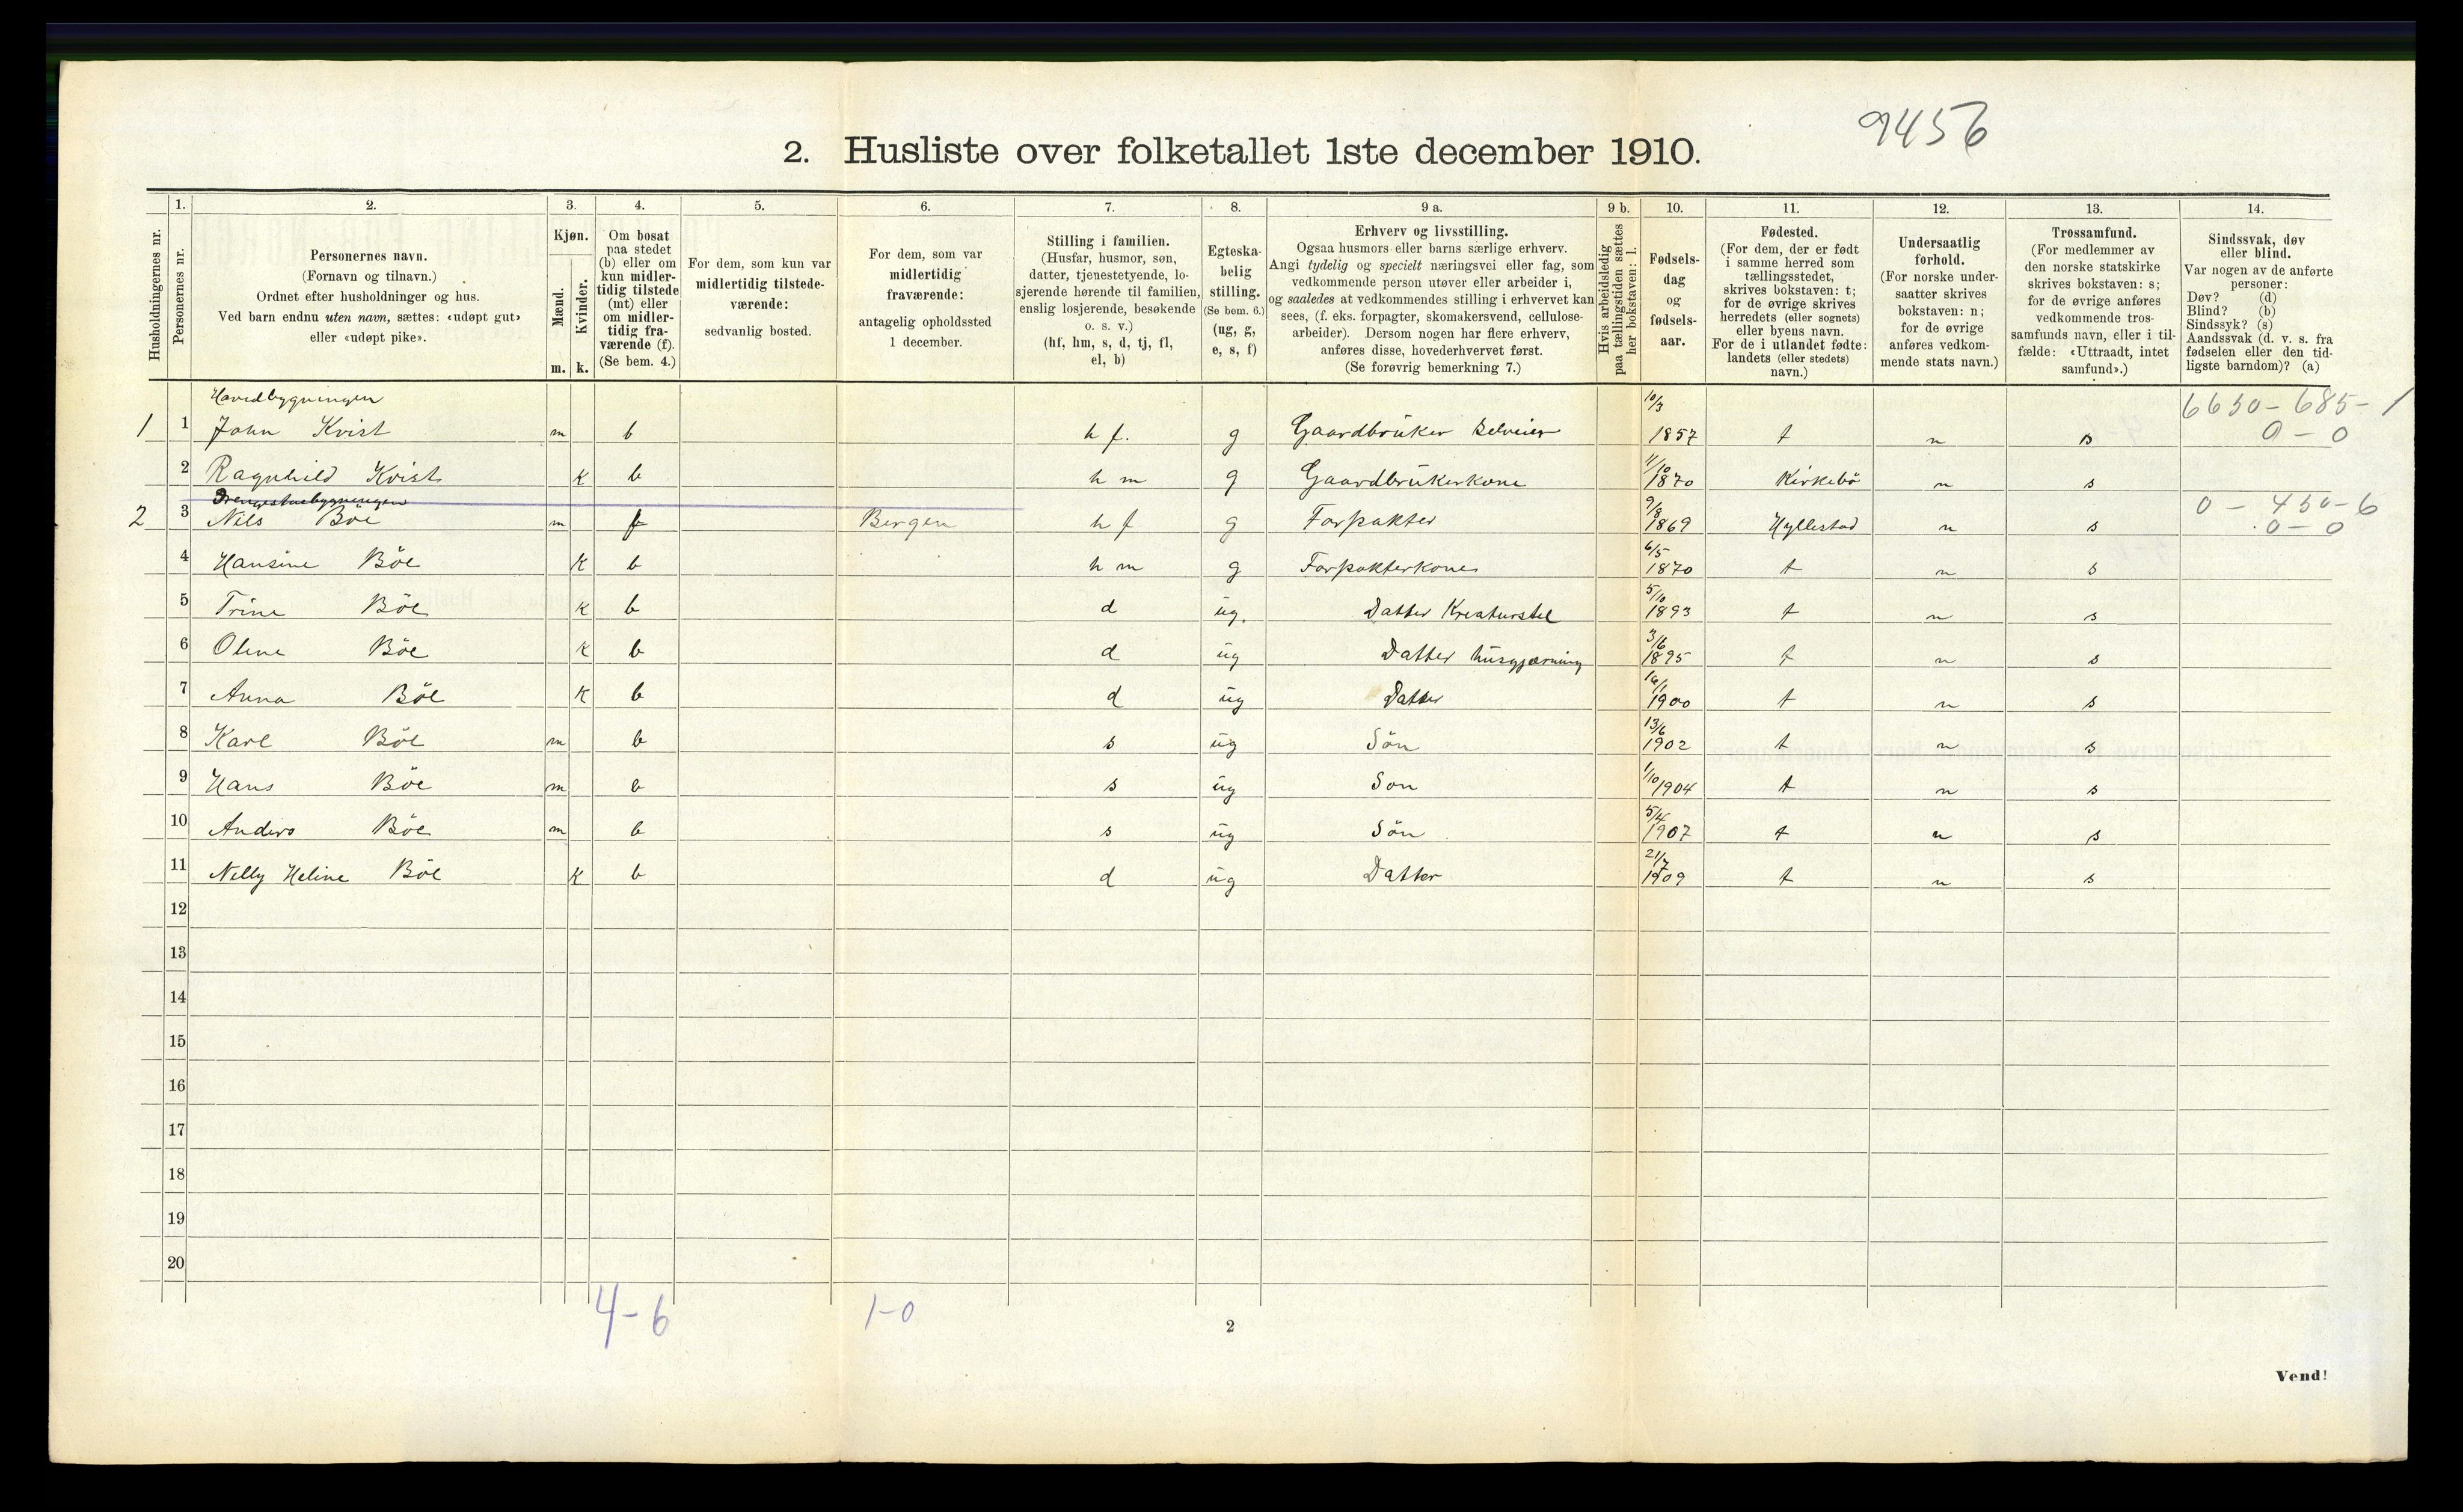 9456
2. Husliste over folketallet 1ste december 1910.
Husholdningernes nr.
1.
Personernes nr.
2.
Personernes navn.
(Fornavn og tilnavn.)
Ordnet efter husholdninger og hus.
Ved barn endnu uten navn, sættes: «udøpt gut»
eller «udøpt pike».
3.
Kjøn.
Mænd.
Kvinder.
m. k.
4.
Om bosat
paa stedet
(b) eller om
kun midler-
tidig tilstede
(mt) eller
om midler-
tidig fra-
værende (f).
(Se bem. 4.)
5.
For dem, som kun var
midlertidig tilstede-
værende:
sedvanlig bosted.
6.
For dem, som var
midlertidig
fraværende:
antagelig opholdssted
1 december.
7.
Stilling i familien.
(Husfar, husmor, søn,
datter, tjenestetyende, lo-
sjerende hørende til familien,
enslig losjerende, besøkende
o. s. v.)
(hf, hm, s, d, tj, fl,
el, b)
8.
Egteska-
belig
stilling.
(Se bem. 6.)
(ug, g,
e, s, f)
9 a.
Erhverv og livsstilling.
Ogsaa husmors eller barns særlige erhverv.
Angi tydelig og specielt næringsvei eller fag, som
vedkommende person utøver eller arbeider i,
og saaledes at vedkommendes stilling i erhvervet kan
sees, (f. eks. forpagter, skomakersvend, cellulose-
arbeider). Dersom nogen har flere erhverv,
anføres disse, hovederhvervet først.
(Se forøvrig bemerkning 7.)
9 b.
Hvis arbeidsledig
paa tællingstiden sættes
her bokstaven: l.
10.
Fødsels-
dag
og
fødsels-
aar.
11.
Fødested.
(For dem, der er født
i samme herred som
tællingsstedet,
skrives bokstaven: t;
for de øvrige skrives
herredets (eller sognets)
eller byens navn.
For de i utlandet fødte:
landets (eller stedets)
navn.)
12.
Undersaatlig
forhold.
(For norske under-
saatter skrives
bokstaven: n;
for de øvrige
anføres vedkom-
mende stats navn.)
13.
Trossamfund.
(For medlemmer av
den norske statskirke
skrives bokstaven: s;
for de øvrige anføres
vedkommende tros-
samfunds navn, eller i til-
fælde: «Uttraadt, intet
samfund».)
14.
Sindssvak, døv
eller blind.
Var nogen av de anførte
personer:
Døv? (d)
Blind? (b)
Sindssyk? (s)
Aandssvak (d. v. s. fra
fødselen eller den tid-
ligste barndom)? (a)
Hovedbygningen
1 1 John Kvist m b h f. g Gaardbruker Selveier 10/3 1857 t n s 6650 - 685 - 1
0 - 0
2 Ragnhild Kvist k b h m g Gaardbrukerkone 4/10 1870 Kirkebö n s
Drengestuebygningen
2 3 Nils Böe m f Bergen h f g Forpakter 9/8 1869 Hyllestad n s 0 - 450 - 6
0 - 0
4 Hansine Böe k b h m g Forpakterkone 6/5 1870 t n s
5 Trine Böe k b d ug. Datter Kreaturstel 5/10 1893 t n s
6 Oline Böe k b d ug Datter husgjerning 3/6 1895 t n s
7 Anna Böe k b d ug Datter 16/1 1900 t n s
8 Karl Böe m b s ug Sön 13/6 1902 t n s
9 Hans Böe m b s ug Son 1/10 1904 t n s
10 Anders Böe m b s ug Sön 5/4 1907 t n s
11 Nelly Heline Böe k b d ug Datter 21/7 1909 t n s
12
13
14
15
16
17
18
19
20
4 - 6 1 - 0
2
Vend!